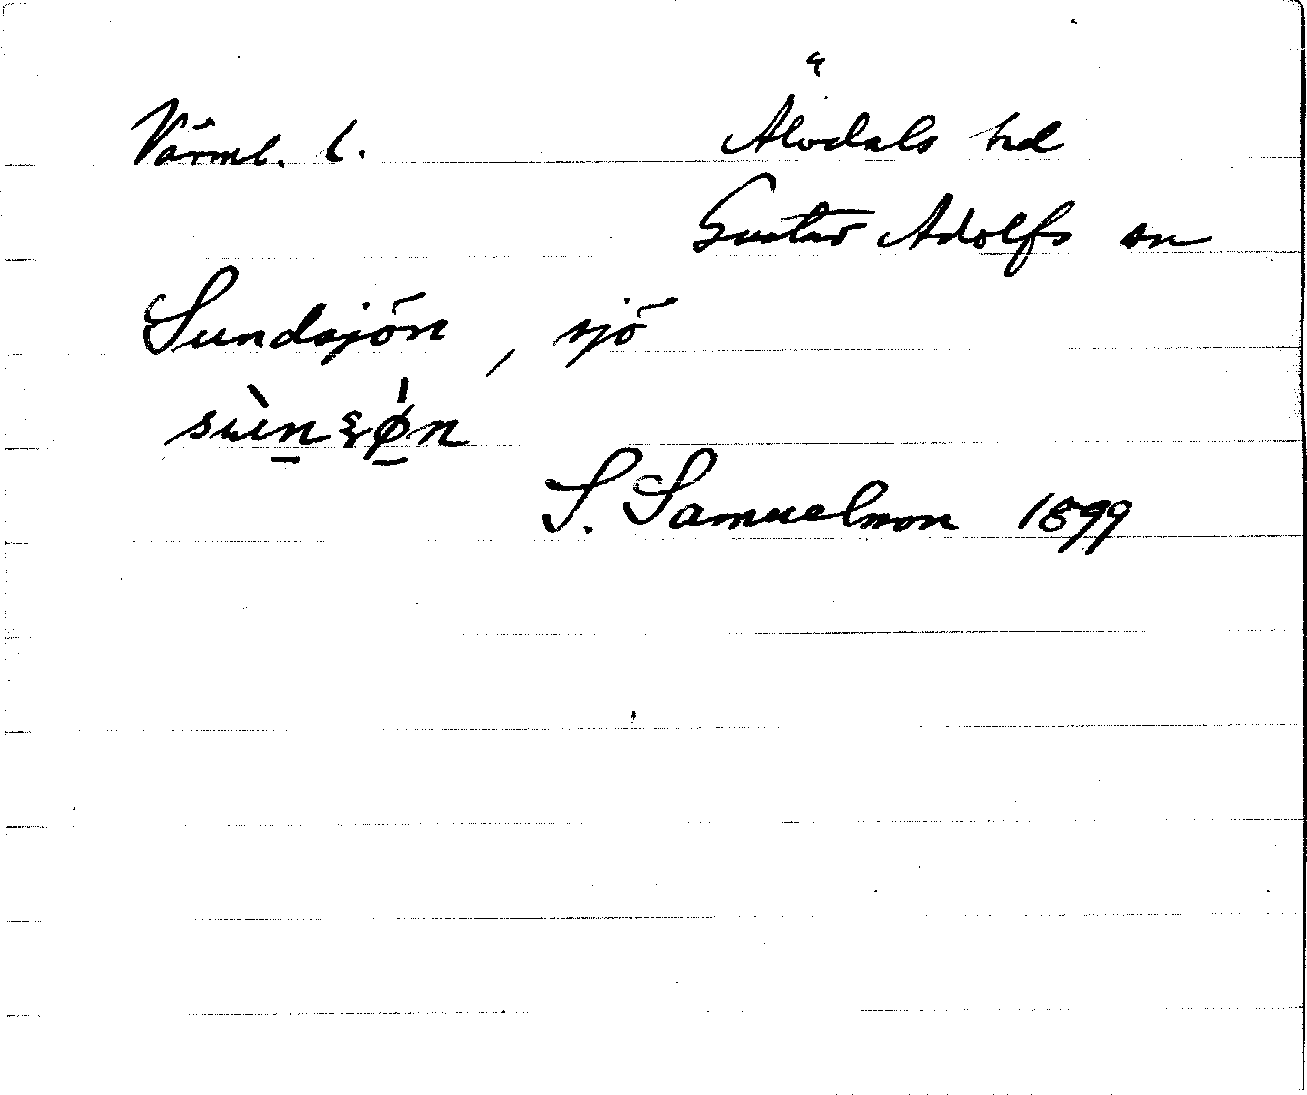 Värml. l. Älvdals hd
Gustav Adolfs sn
Sundsjön, sjö
S. Samuelson 1899